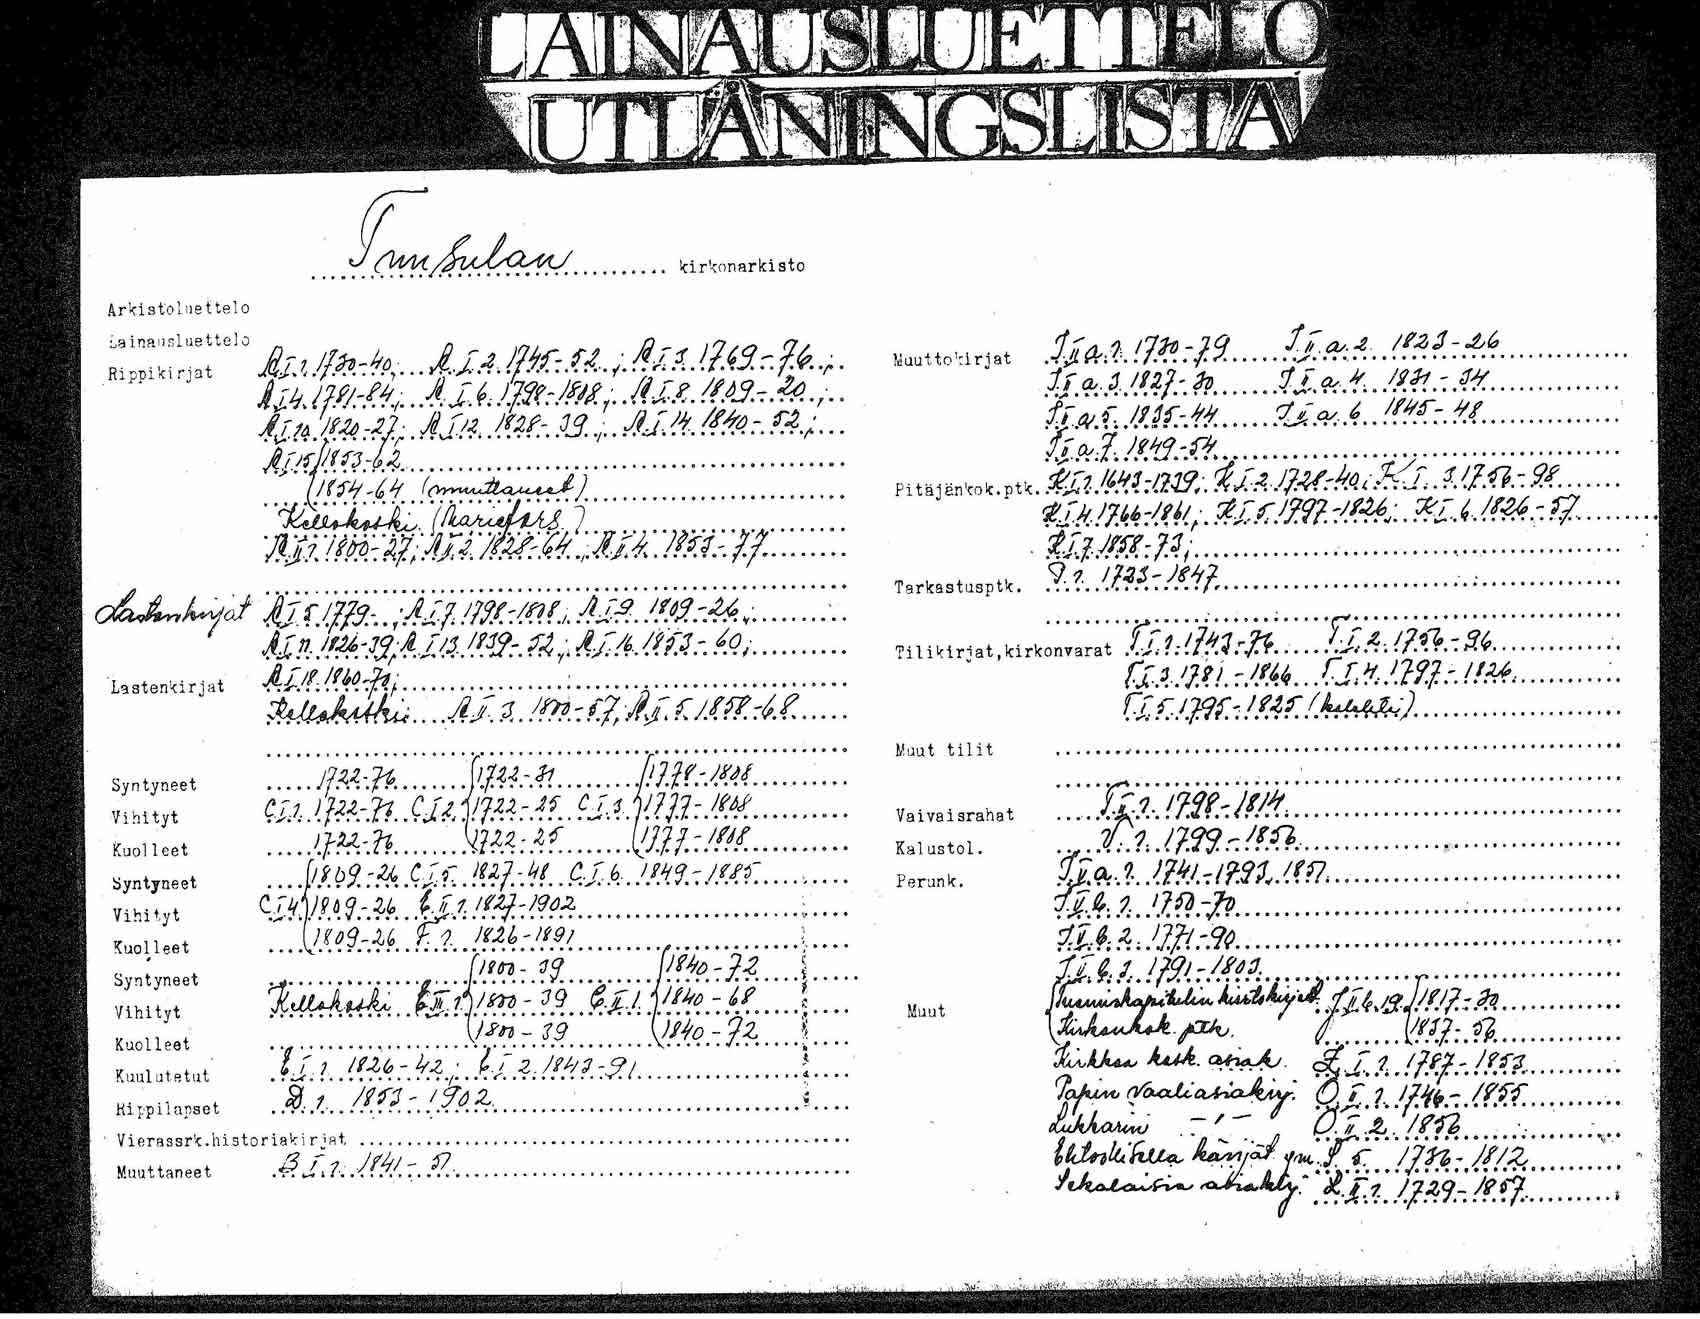 LAINAUSLUETTELO
UTLÅNINGSLISTA
Tuusulan kirkonarkisto
Arkistoluettelo
Lainausluettelo
Rippikirjat A I 1. 1730-40; A I 2. 1745-52; A I 3. 1769-76;
A I 4. 1781-84; A I 6. 1798-1808; A I 8. 1809-20;
A I 10. 1820-27; A I 12. 1828-39; A I 14. 1840-52;
A I 15 1853-62
1854-64 (muuttaneet)
Kellokoski (Mariefors)
A II 1. 1800-27; A II 2. 1828-64; A II 4. 1853-77
Lastenkirjat A I 5. 1779- ; A I 7. 1798-1808; A I 9. 1809-26;
A I 11. 1826-39; A I 13. 1839-52; A I 16. 1853-60;
Lastenkirjat A I 18. 1860-70;
Kellokoski A II 3. 1800-57; A II 5. 1858-68
Syntyneet 1722-76 1722-31 1778-1808
Vihityt C I 1. 1722-76 C I 2. 1722-25 C I 3. 1777-1808
Kuolleet 1722-76 1722-25 1777-1808
Syntyneet 1809-26 C I 5. 1827-48 C I 6. 1849-1885
Vihityt C I 4. 1809-26 E II 1. 1827-1902
Kuolleet 1809-26 F. 1. 1826-1891
Syntyneet 1800-39 1840-72
Vihityt Kellokoski 1800-39 1840-68
Kuolleet 1800-39 1840-72
Kuulutetut E I 1. 1826-42; E I 2. 1843-91
Rippilapset D. 1. 1853-1902
Vierassrk.historiakirjat
Muuttaneet B I 1. 1841-51
Muuttokirjat J II a. 1. 1730-79 J II a. 2. 1823-26
J II a. 3. 1827-30 J II a. 4. 1831-34
J II a. 5. 1835-44 J II a. 6. 1845-48
J II a. 7. 1849-54
Pitäjänkok.ptk. K I 1. 1643-1739; K I 2. 1728-40; K I. 3. 1756-98
K I 4. 1766-1861; K I 5. 1797-1826; K I 6. 1826-57
K I 7. 1858-73;
Tarkastusptk. P. 1. 1723-1847
Tilikirjat,kirkonvarat T I 1. 1743-76 T. I. 2. 1756-96
T I 3. 1781-1866 T. I. 4. 1797-1826
T. I. 5. 1795-1825 (kolehti)
Muut tilit
Vaivaisrahat T II 1. 1798-1814
Kalustol. V. 1. 1799-1856
Perunk. 1741-1793, 1851
1750-70
1771-90
1791-1803
Muut Tuomiokapitulin kiertokirjeet 1817-30
Kirkonkok. ptk. 1837-56
Kirkkoa kosk. asiak. I. 1. 1787-1853
Papin vaaliasiakirj. O. II. 1. 1746-1855
Lukkarin -"- O. II. 2. 1856
Ehtoollisella käyvät ym. S. 5. 1736-1812
Sekalaisia asiakirj. II. 1. 1729-1857